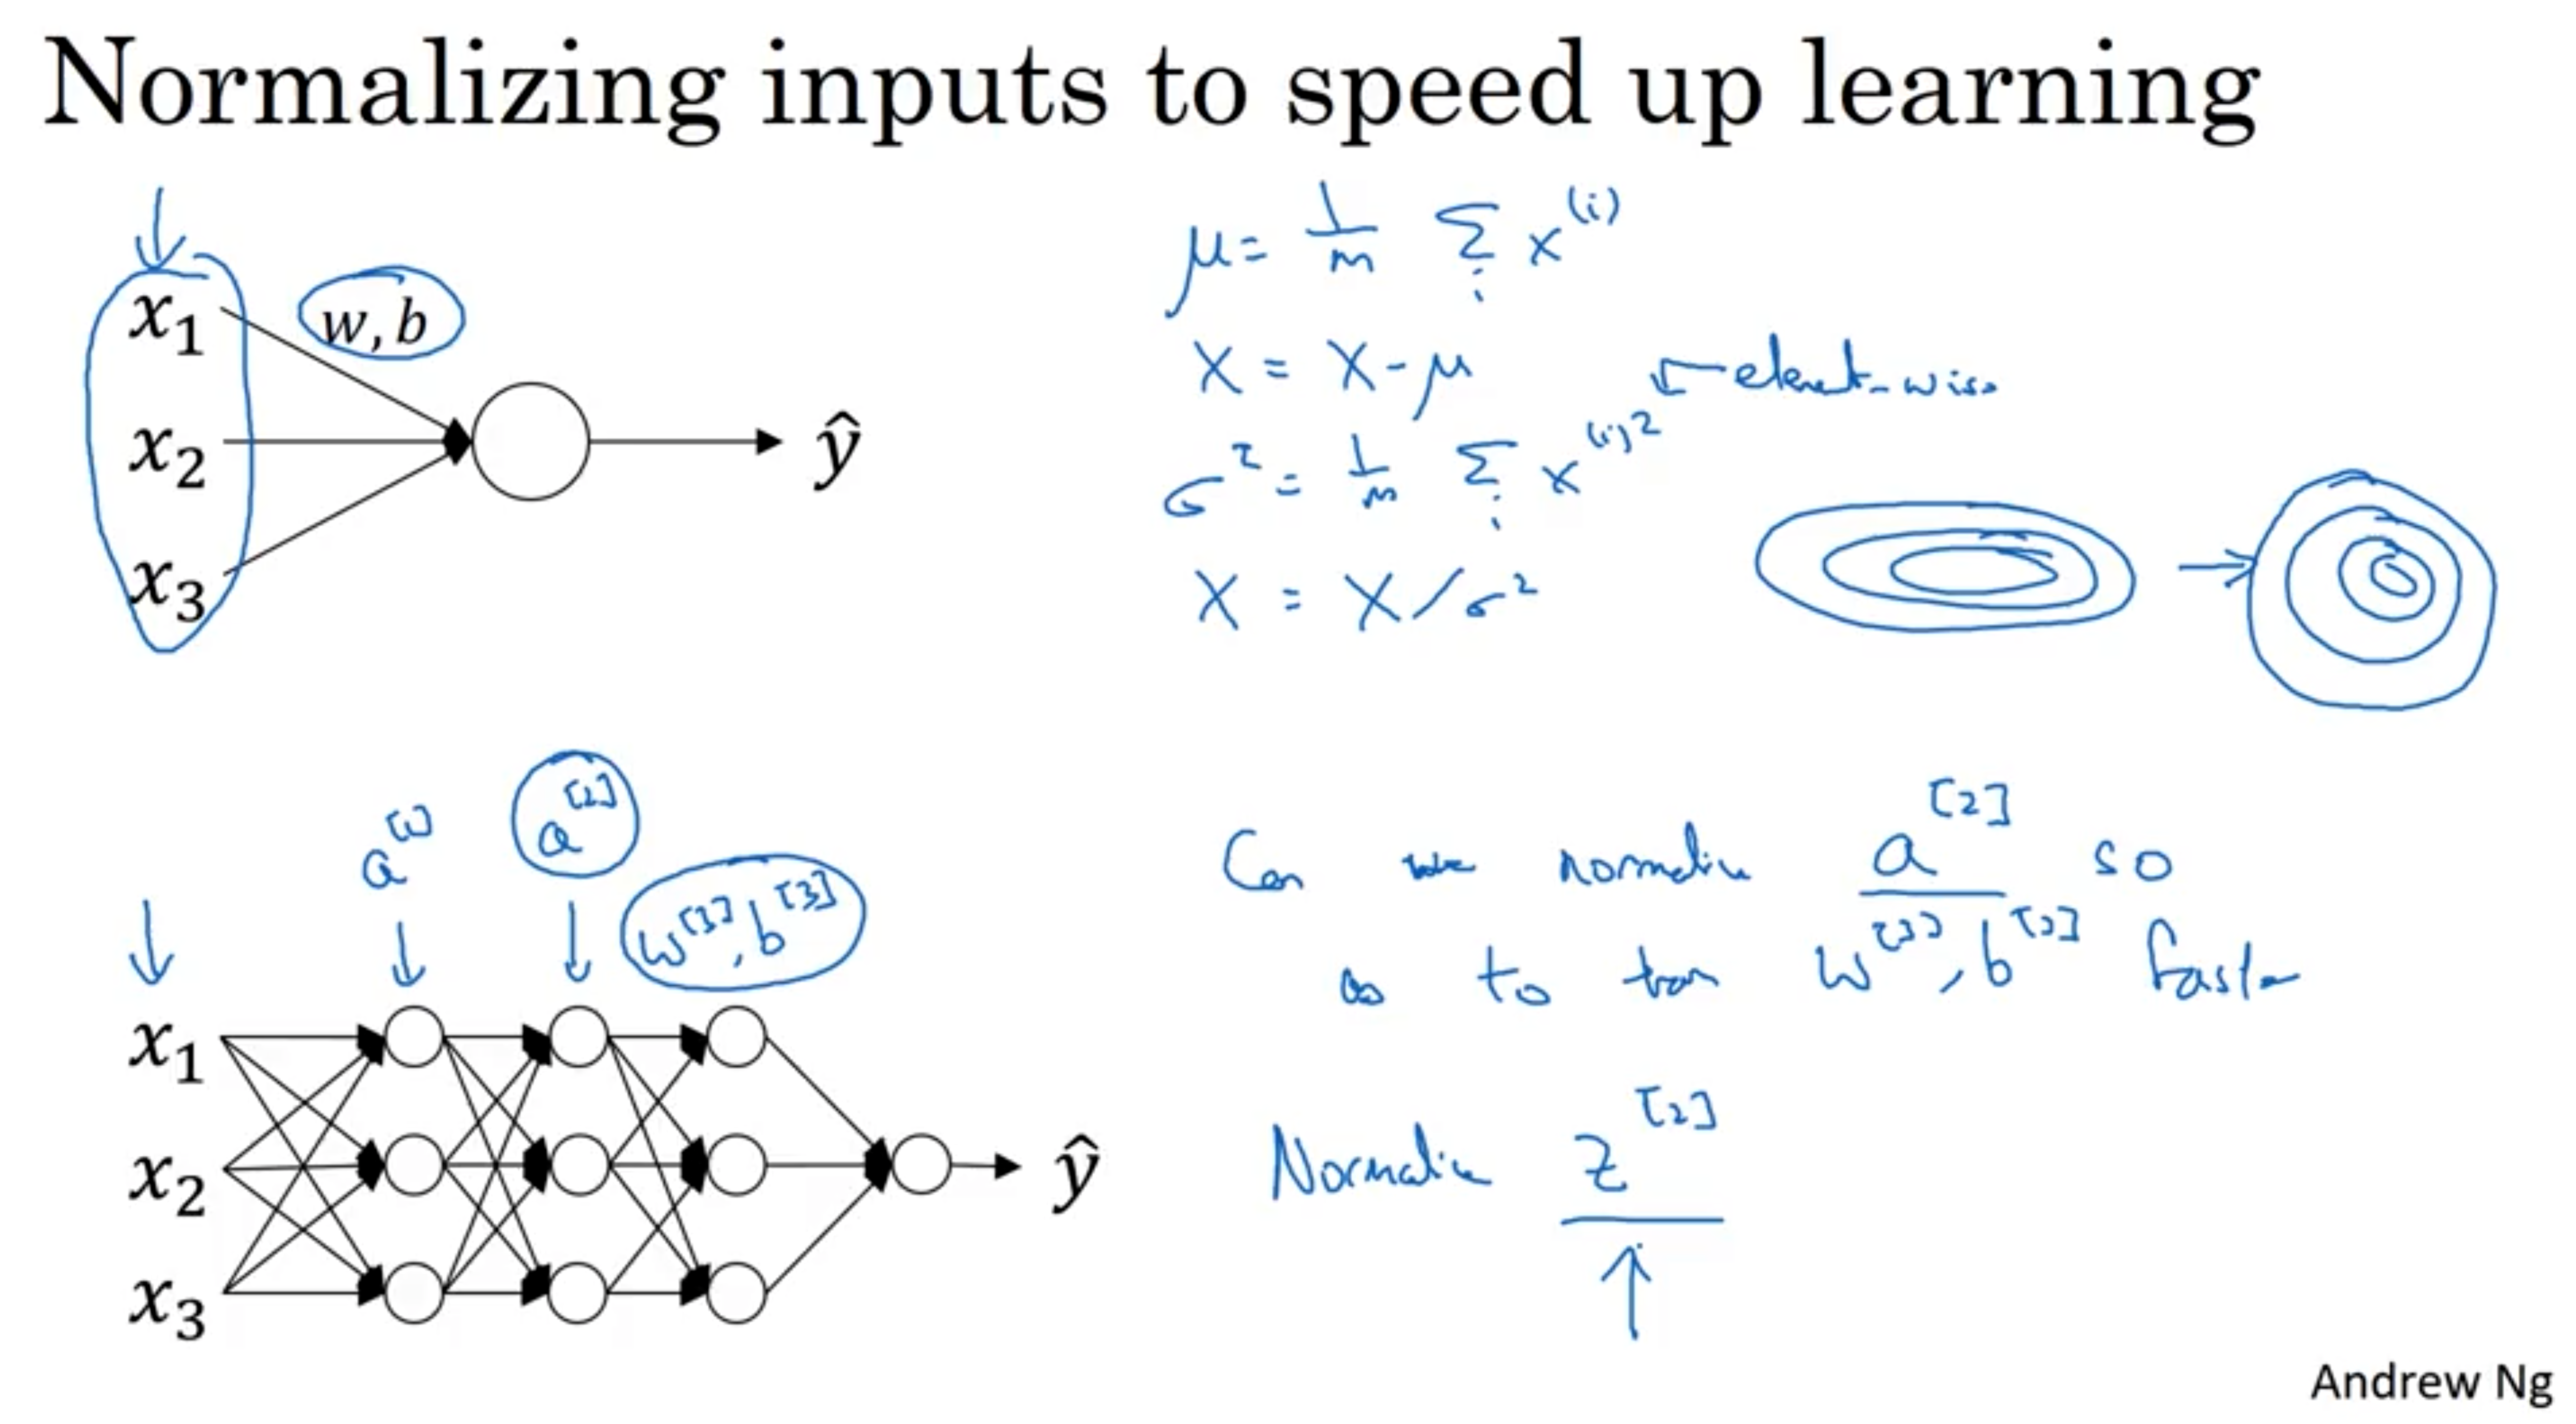 Normalizing inputs to speed up learning
x₁
w, b
x₂
x₃
ŷ
μ = 1/m Σᵢ x⁽ⁱ⁾
X = X - μ
← element-wise
σ² = 1/m Σᵢ x⁽ⁱ⁾²
X = X / σ²
a[1]
a[2]
w[3], b[3]
x₁
x₂
x₃
ŷ
Can we normalize a[2] so
as to train w[3], b[3] faster
Normalize z[2]
Andrew Ng